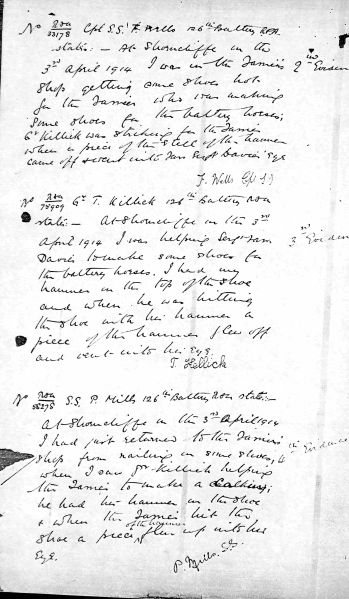 No RFA 33178 Cpl S.S. F. Wells 126th Battery RFA
states:- At Shorncliffe on the
3rd April 1914 I was in the Farriers 2nd Evidence
Shop getting some shoes hot
for the Farrier who was making
some shoes for the battery horses;
Gr Killick was striking for the Farrier
when a piece of the steel of the hammer
came off & went into Farr Sergt Davies' Eye
F. Wells Cpl S.S.
No RFA Gr T. Killick 126th Battery RFA
state:- At Shorncliffe on the 3rd
April 1914 I was helping Sergt Farr 3rd Evidence
Davies to make some shoes for
the battery horses. I held my
hammer on the top of the shoe
and when he was hitting
the shoe with his hammer a
piece of the hammer flew off
and went into his Eye
T. Killick
No RFA S.S. P. Mills 126th Battery RFA state:-
At Shorncliffe on the 3rd April 1914
I had just returned to the Farriers
shop from nailing on some shoes, 4th Evidence
when I saw Gr Killick helping
the Farrier to make a
he had his hammer on the shoe
& when the Farrier hit the
shoe a piece of the hammer flew up into his
Eye.
P Mills. S.S.